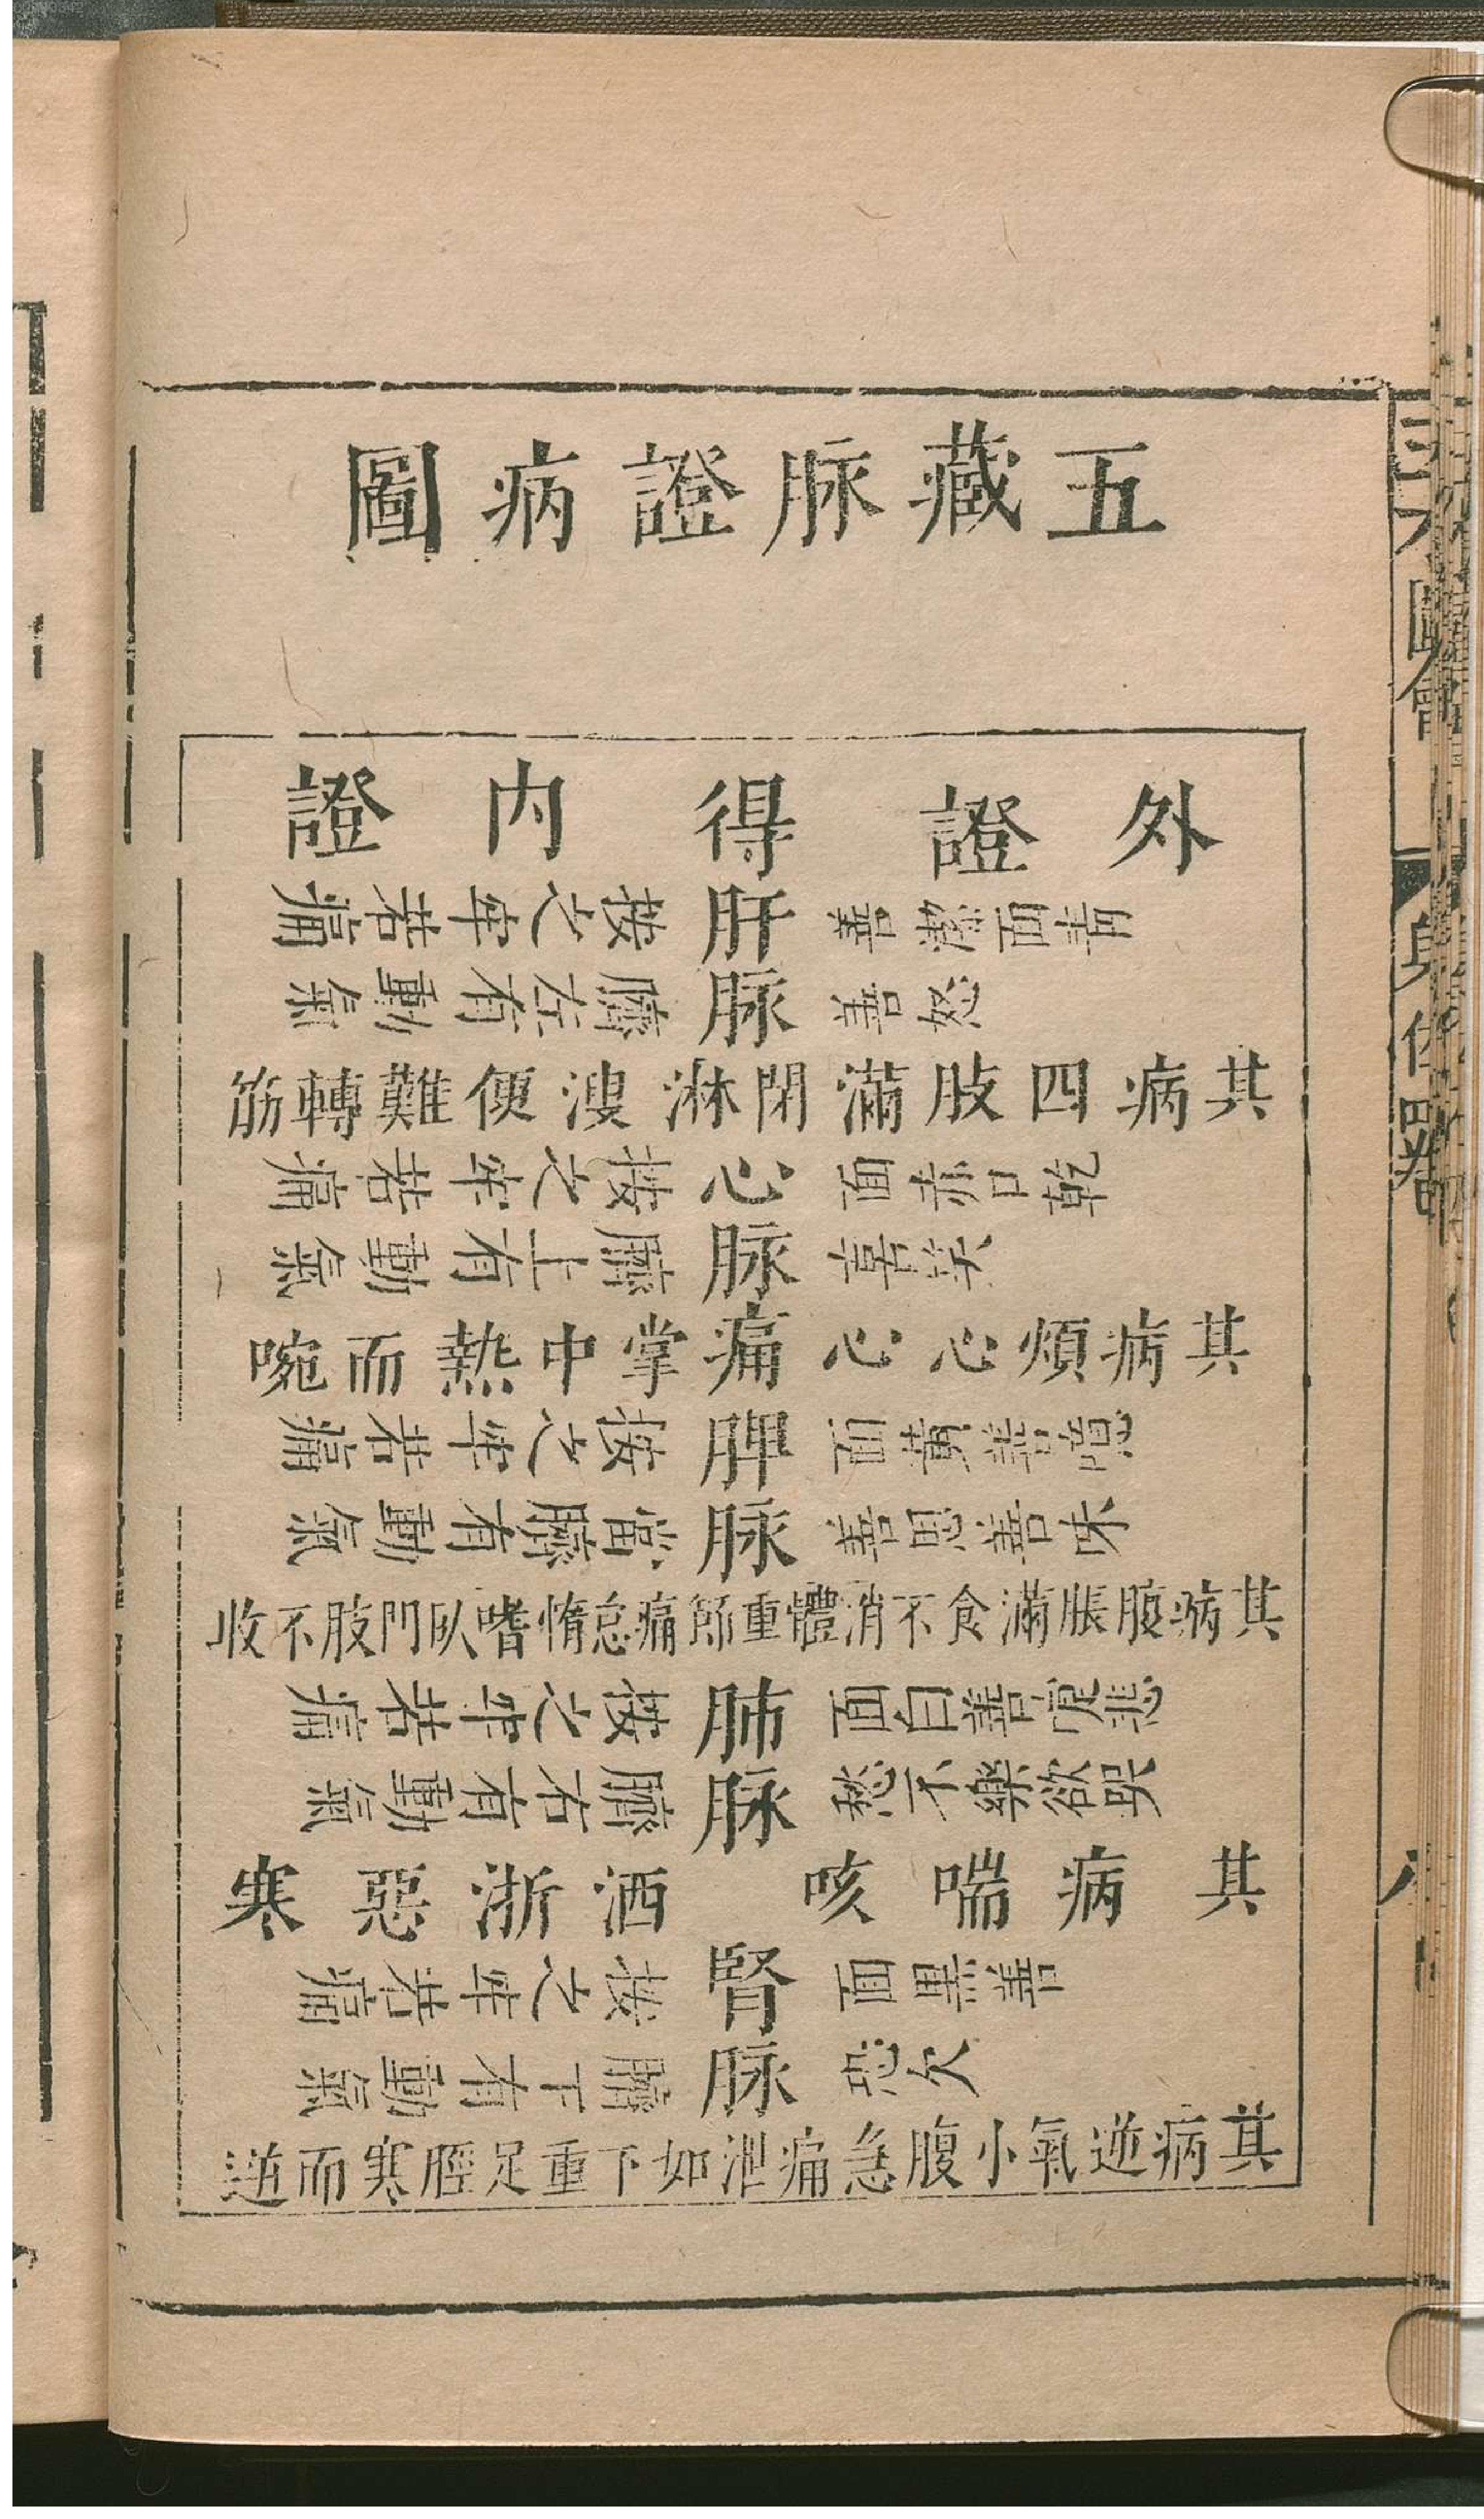 五藏脉證病圖
外證得內證
善潔面青
善怒
肝脉
按之牢若痛
臍左有動氣
其病四肢滿閉淋溲便難轉筋
面赤口乾
喜笑
心脉
按之牢若痛
臍上有動氣
其病煩心心痛掌中熱而啘
面黃善噫
善思善味
脾脉
按之牢若痛
當臍有動氣
其病腹脹滿食不消體重節痛怠惰嗜臥門肢不收
面白善嚏悲
愁不樂欲哭
肺脉
按之牢若痛
臍右有動氣
其病喘咳洒浙惡寒
面黑善
恐欠
腎脉
按之牢若痛
臍下有動氣
其病逆氣小腹急痛泄如下重足脛寒而逆
圖會